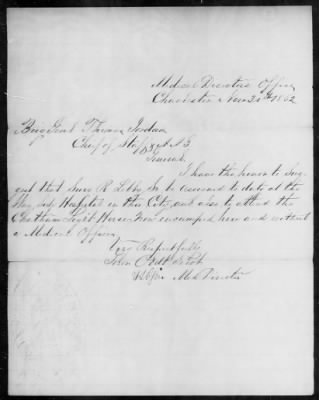 Medical Directors Office
Charleston Nov 25th 1862
Brig Genl Thomas Jordan
Chief of Staff &
General
I have the honor to sug
gest that Surg R. Libby Sr be assigned to duty at the
Hospital in this City, and also to attend the
Chatham Light Horse now encamped here and without
a Medical Officer
Very Respectfully
Medl Director